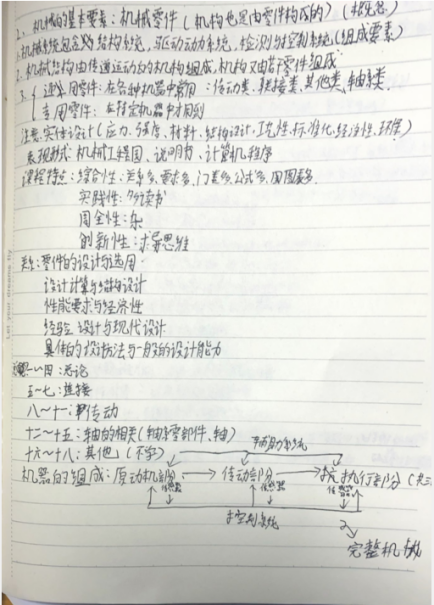 1、机械的基本要素：机械零件（机构也是由零件构成的）（概念）
机械系统包含：结构系统，驱动动力系统，检测与控制系统（组成要素）
2、机械结构由传递运动的机构组成，机构又由若干零件组成
3、通用零件：在各种机器中常用：传动类、联接类、其他类、轴系类
专用零件：在特定机器中才用到
注意：实体设计（应力、强度、材料、结构设计、工艺性、标准化、经济性、环保）
表现形式：机械工程图、说明书、计算机程序
课程特点：综合性：关系多、要求多、门类多、公式多、图表多
实践性：
周全性：
创新性：求异思维
关系：零件的设计与选用
设计计算与结构设计
性能要求与经济性
经验设计与现代设计
具体的设计方法与一般的设计能力
一～四：总论
五～七：连接
八～十一：传动
十二～十五：轴的相关（轴零部件、轴）
十六～十八：其他（不学）
辅助系统
机器的组成：原动机部分 → 传动部分 → 执行部分
传感器 传感器 传感器
控制系统
完整机械